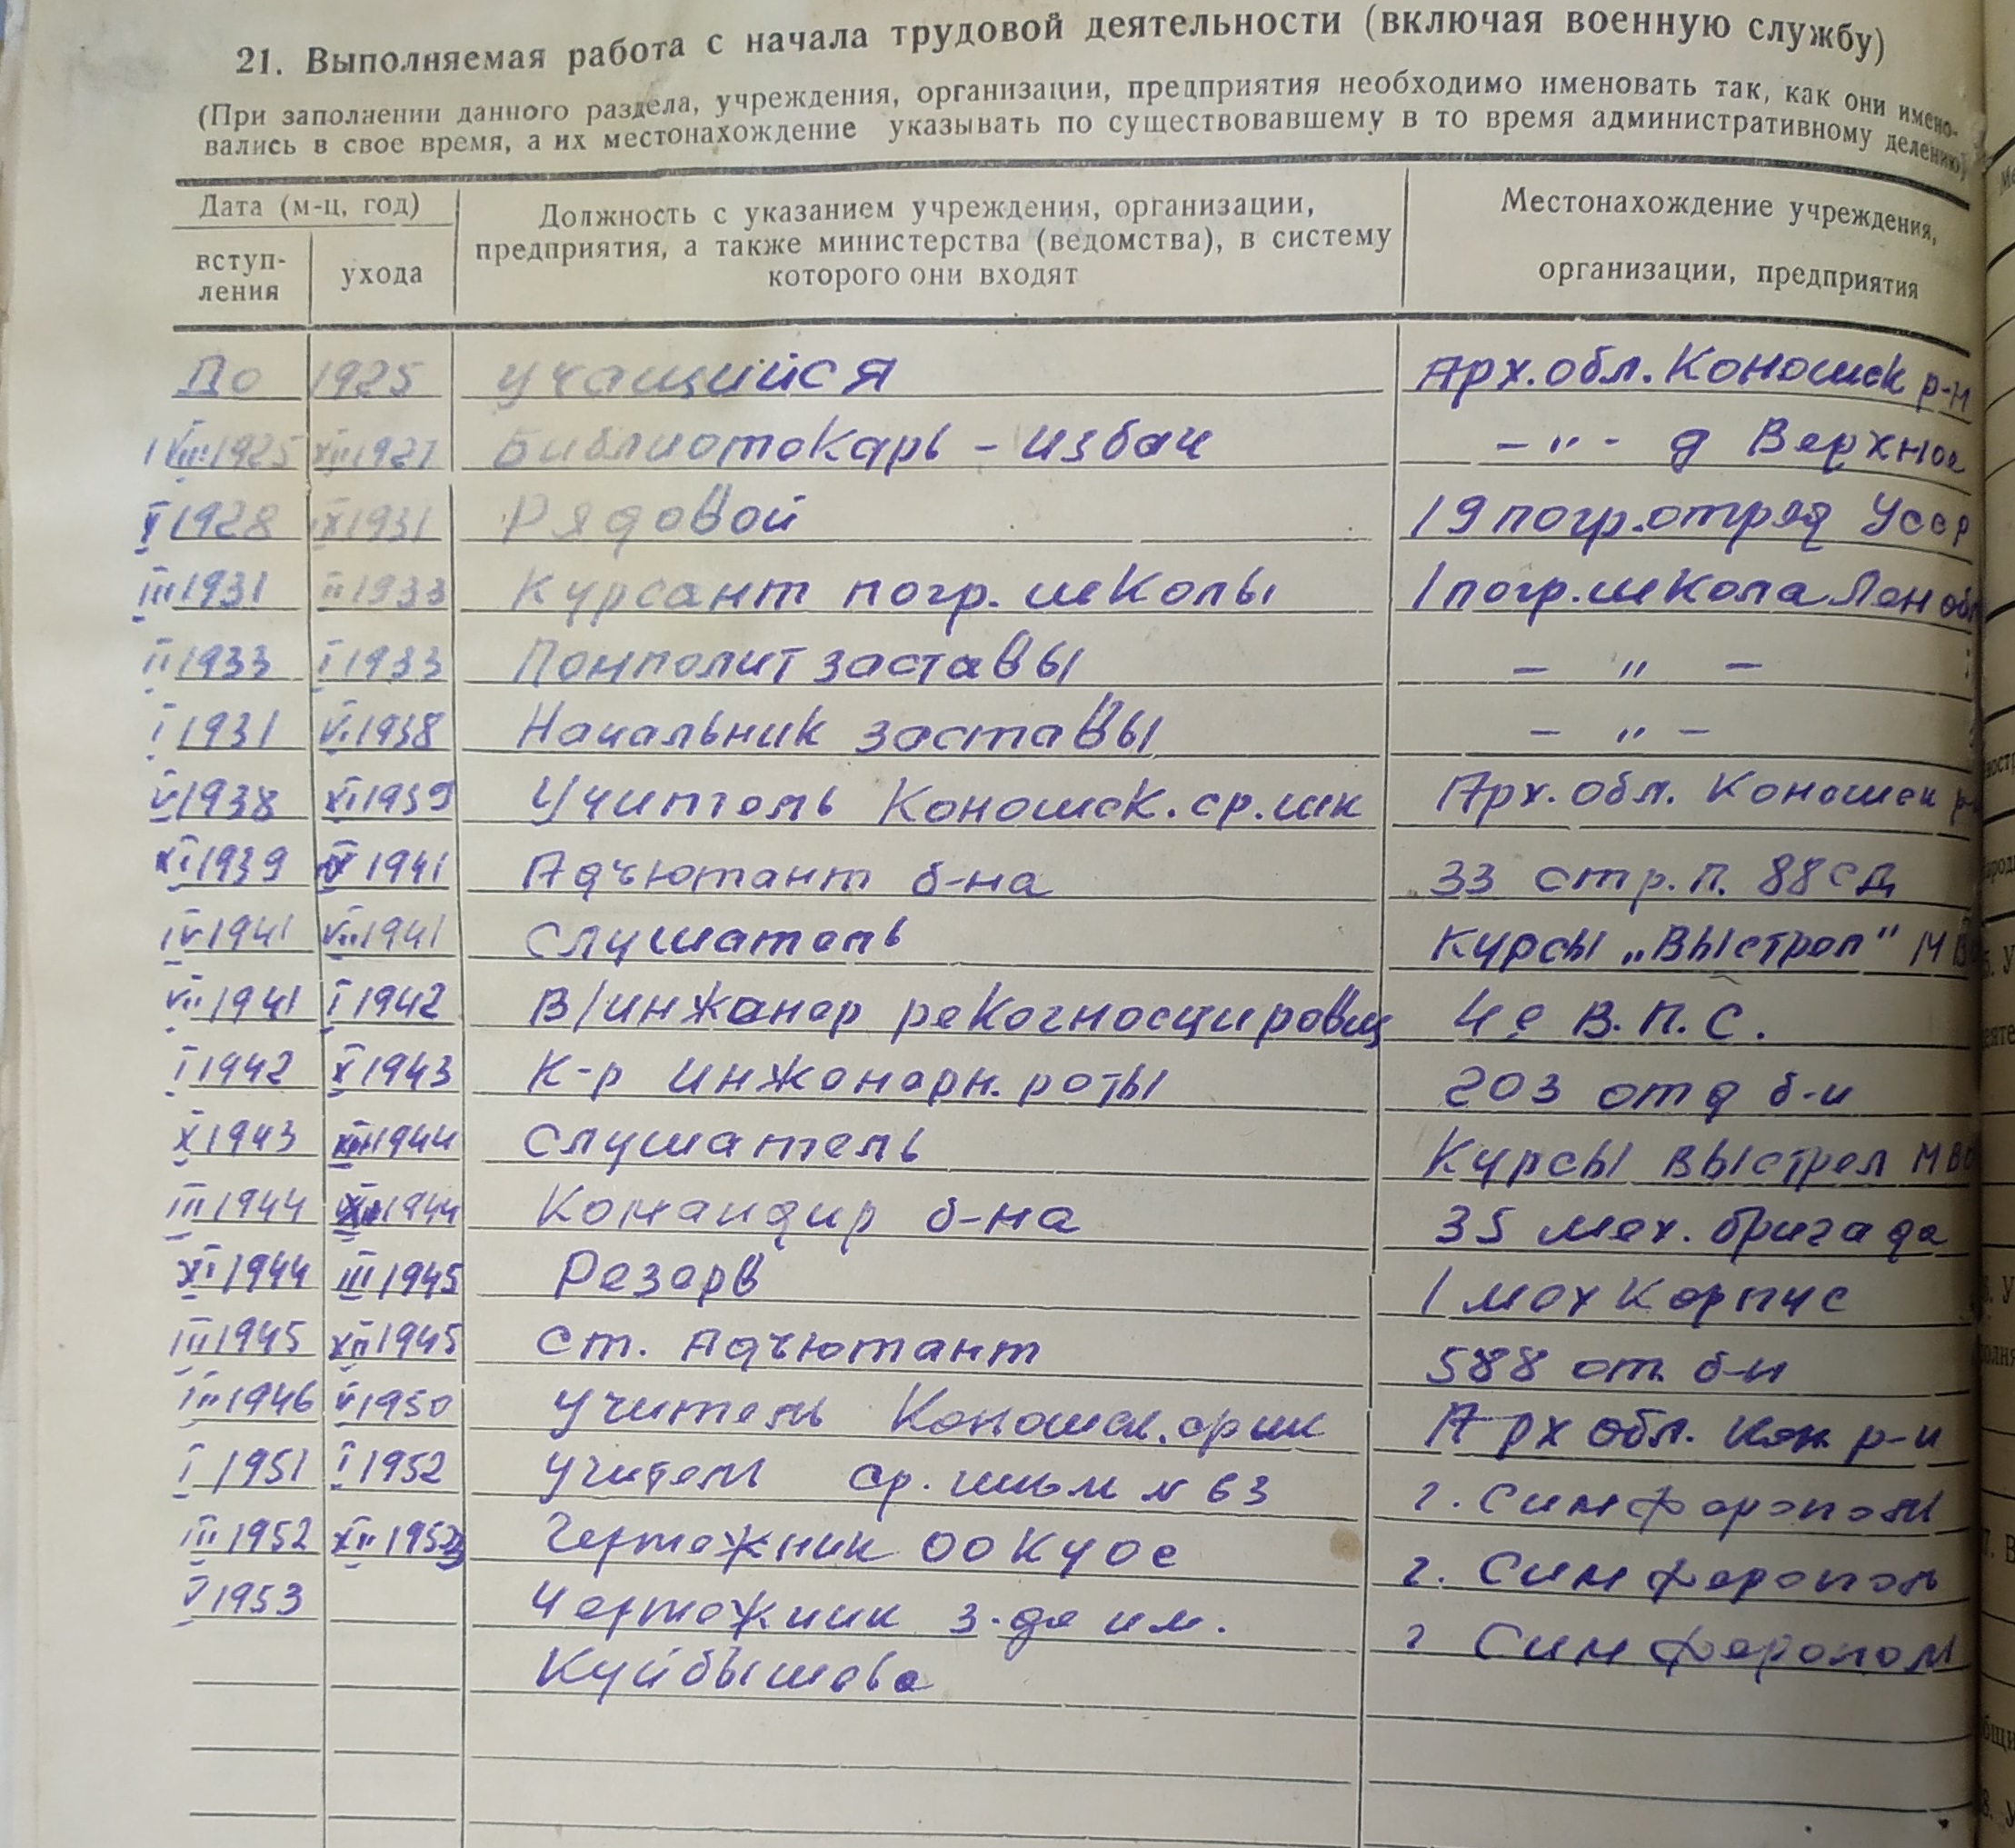 21. Выполняемая работа с начала трудовой деятельности (включая военную службу)
(При заполнении данного раздела, учреждения, организации, предприятия необходимо именовать так, как они имено-
вались в свое время, а их местонахождение указывать по существовавшему в то время административному делению)
Дата (м-ц, год)
вступ-
ления
ухода
Должность с указанием учреждения, организации,
предприятия, а также министерства (ведомства), в систему
которого они входят
Местонахождение учреждения,
организации, предприятия
До 1925 учащийся Арх. обл. Коношск р-н
VIII 1925 XII 1927 Библиотекарь - избач - " - д Верхнее
X 1928 IX 1931 Рядовой 19 погр. отряд УССР
III 1931 II 1933 Курсант погр. школы 1 погр. школа Лен обл
II 1933 I 1933 Помполит заставы - " -
I 1931 VI 1938 Начальник заставы - " -
V 1938 XI 1939 Учитель Коношск. ср. шк Арх. обл. Коношск р-н
XI 1939 1941 Адъютант б-на 33 стр. п. 88 СД
IV 1941 VII 1941 Слушатель Курсы „Выстрел" МВО
VII 1941 I 1942 В/инженер рекогносцировщ 4е В.П.С.
I 1942 X 1943 К-р инженерн. роты 203 отд б-н
X 1943 1944 Слушатель Курсы Выстрел МВО
III 1944 1944 Командир б-на 35 мех. бригада
XI 1944 III 1945 Резерв 1 мех корпус
III 1945 XII 1945 Ст. Адъютант 588 от. б-н
III 1946 V 1950 Учитель Коношск. ср шк Арх обл. Кон. р-н
I 1951 I 1952 Учитель ср. школ N 63 г. Симферополь
III 1952 XII 1952 Чертежник ОО г. Симферополь
V 1953 Чертежник з-да им. г Симферополь
Куйбышева